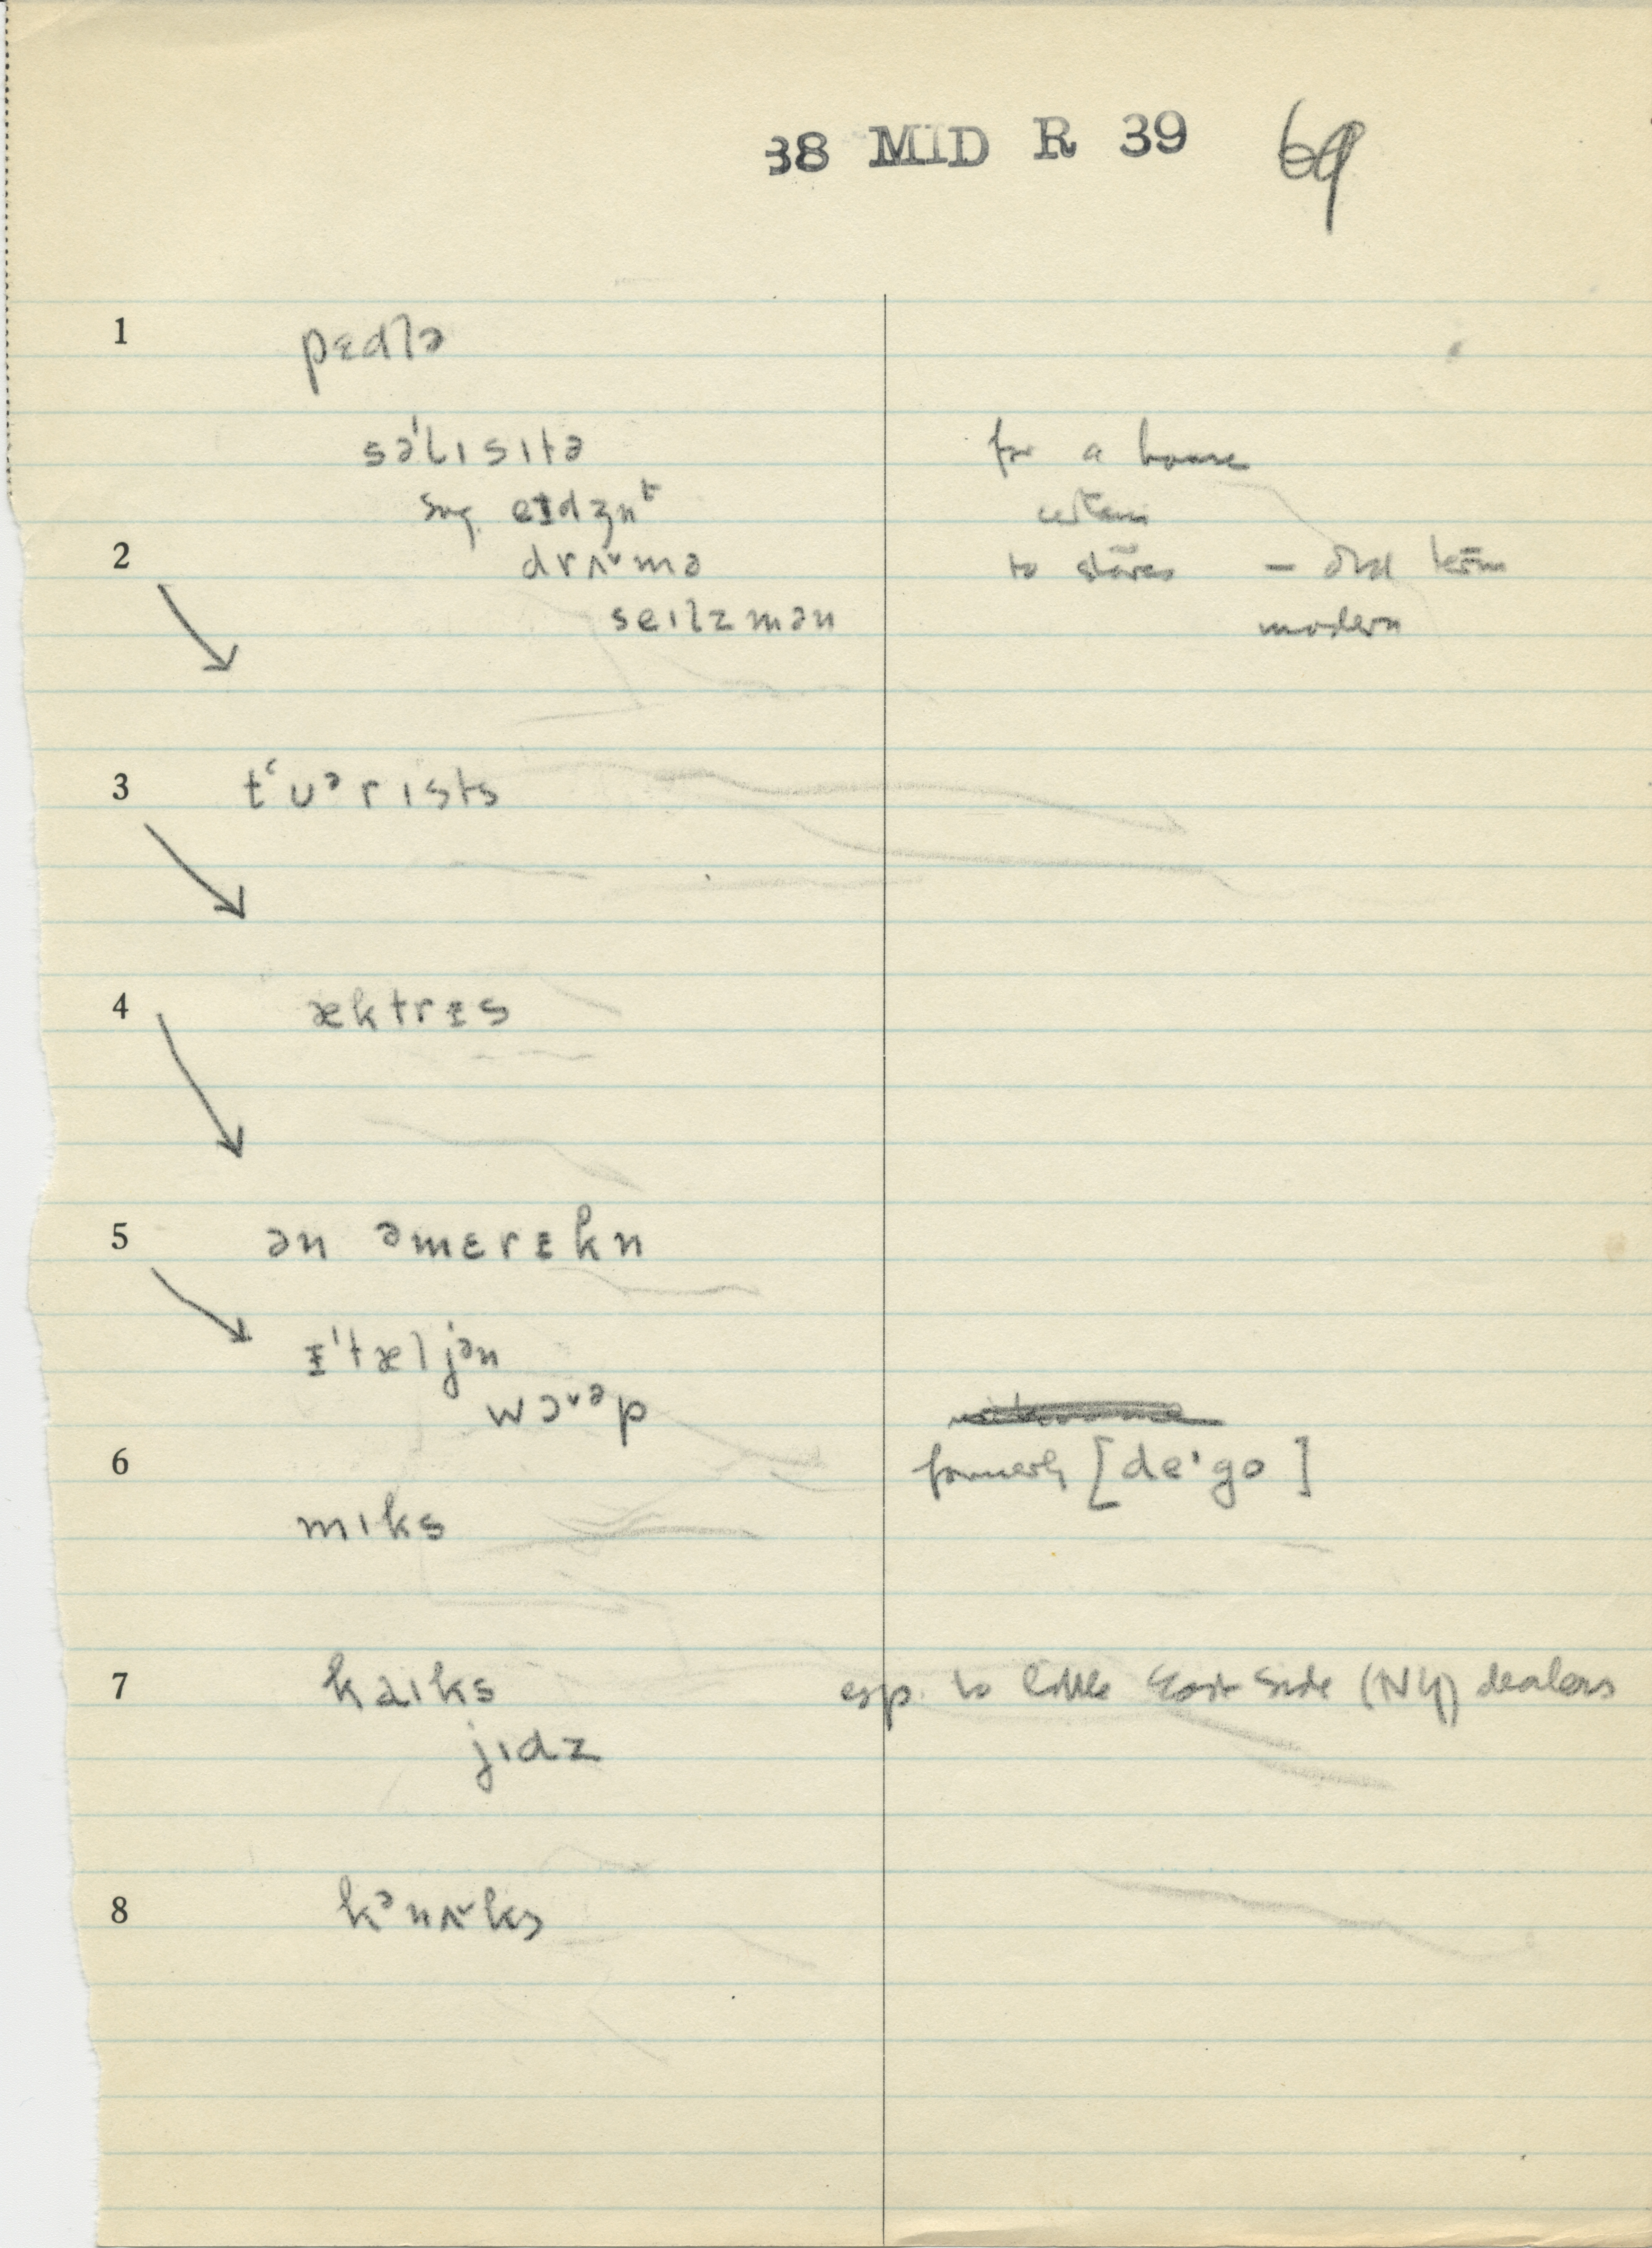 38 MID R 39 69
1 pɛdlə
səˈlɪsɪtə for a house
sug. eɪdʒn^t certain
2 drʌ˅mə to stores – old term
seɪlzmən modern
3 tʻʊᵊrɪsts
4 æktrᵻs
5 ən ᵊmɛrᵻkn
ᵻˈtæljən
wɔ˅ᵊp
6 formerly [deˑgo]
mɪks
7 kaɪks esp. to little East Side (NY) dealers
jɪdz
8 kᵊnʌ˅ks